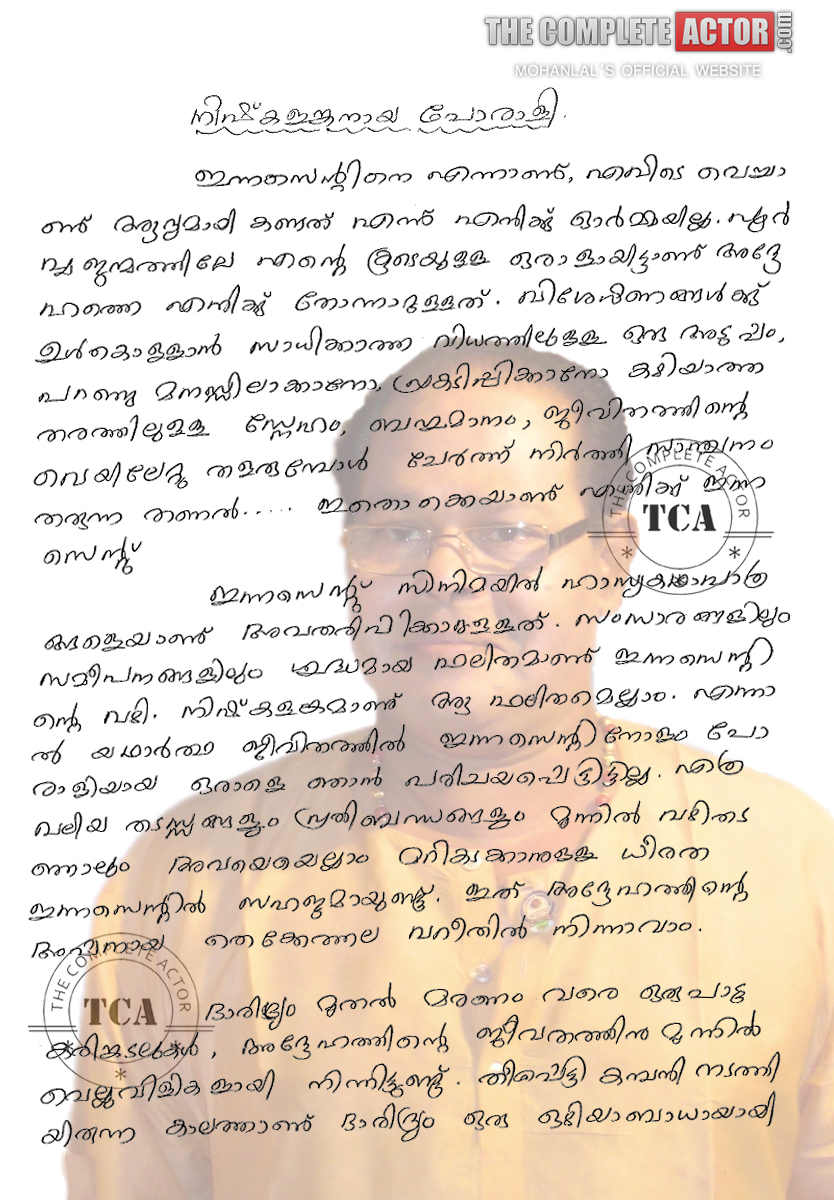 THE COMPLETE ACTOR.com
MOHANLAL'S OFFICIAL WEBSITE
നിഷ്കളങ്കനായ പോരാളി.
ഇന്നസെന്റിനെ എന്നാണ്, എവിടെ വെച്ചാ
ണ് ആദ്യമായി കണ്ടത് എന്ന് എനിക്ക് ഓർമ്മയില്ല. പൂർ
വ്വ ജന്മത്തിലേ എന്റെ കൂടെയുള്ള ഒരാളായിട്ടാണ് അദ്ദേ
ഹത്തെ എനിക്ക് തോന്നാറുള്ളത്. വിശേഷണങ്ങൾക്ക്
ഉൾകൊള്ളാൻ സാധിക്കാത്ത വിധത്തിലുള്ള ഒരു അടുപ്പം,
പറഞ്ഞു മനസ്സിലാക്കാനോ, പ്രകടിപ്പിക്കാനോ കഴിയാത്ത
തരത്തിലുള്ള സ്നേഹം, ബഹുമാനം, ജീവിതത്തിന്റെ
വെയിലേറ്റു തളരുമ്പോൾ ചേർത്ത് നിർത്തി സാന്ത്വനം
തരുന്ന തണൽ..... ഇതൊക്കെയാണ് എനിക്ക് ഇന്ന
സെന്റ്
ഇന്നസെന്റ് സിനിമയിൽ ഹാസ്യകഥാപാത്ര
ങ്ങളെയാണ് അവതരിപ്പിക്കാറുള്ളത്. സംസാരങ്ങളിലും
സമീപനങ്ങളിലും ശുദ്ധമായ ഫലിതമാണ് ഇന്നസെന്റി
ന്റെ വഴി. നിഷ്കളങ്കമാണ് ആ ഫലിതമെല്ലാം. എന്നാ
ൽ യഥാർത്ഥ ജീവിതത്തിൽ ഇന്നസെന്റിനോളം പോ
രാളിയായ ഒരാളെ ഞാൻ പരിചയപ്പെട്ടിട്ടില്ല. എത്ര
വലിയ തടസ്സങ്ങളും പ്രതിബന്ധങ്ങളും മുന്നിൽ വഴിതട
ഞ്ഞാലും അവയെയെല്ലാം മറികടക്കാനുള്ള ധീരത
ഇന്നസെന്റിൽ സഹജമായുണ്ട്. ഇത് അദ്ദേഹത്തിന്റെ
അച്ഛനായ തെക്കേത്തല വറീതിൽ നിന്നാവാം.
ദാരിദ്ര്യം മുതൽ മരണം വരെ ഒരുപാട്
കരിങ്കടലുകൾ, അദ്ദേഹത്തിന്റെ ജീവതത്തിന് മുന്നിൽ
വെല്ലുവിളികളായി നിന്നിട്ടുണ്ട്. തീപ്പെട്ടി കമ്പനി നടത്തി
യിരുന്ന കാലത്താണ് ദാരിദ്ര്യം ഒരു ഒഴിയാബാധായായി
THE COMPLETE ACTOR
TCA
THE COMPLETE ACTOR
TCA